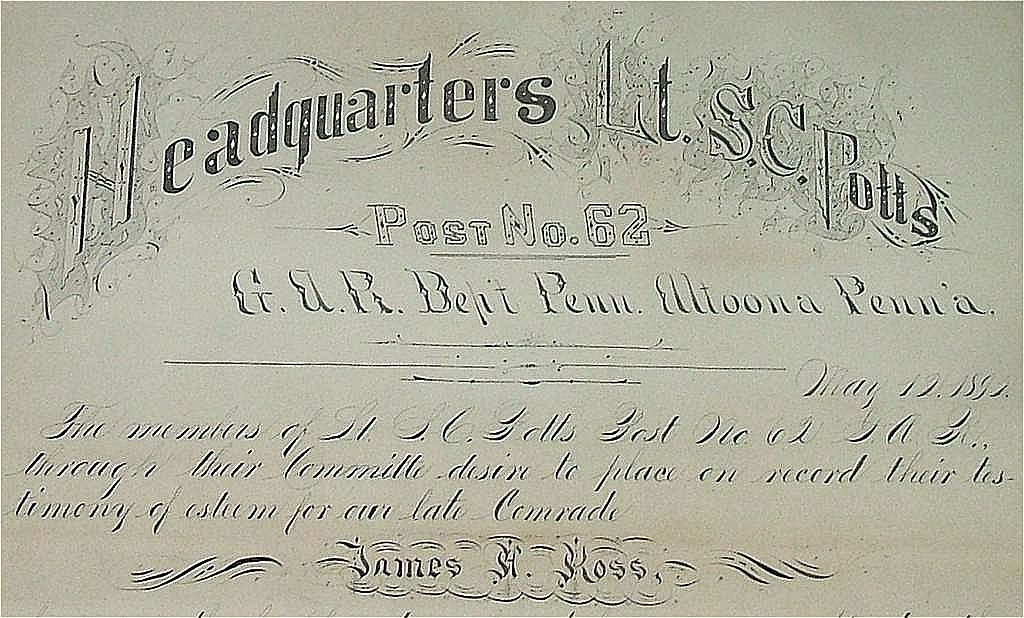 Headquarters Lt. S. C. Potts
Post No. 62
G. A. R. Dep't Penn. Altoona Penn'a.
May 12. 
The members of Lt. S. C. Potts Post No 62 G. A. R.,
through their Committe desire to place on record their tes-
timony of esteem for our late Comrade
James H. Ross,